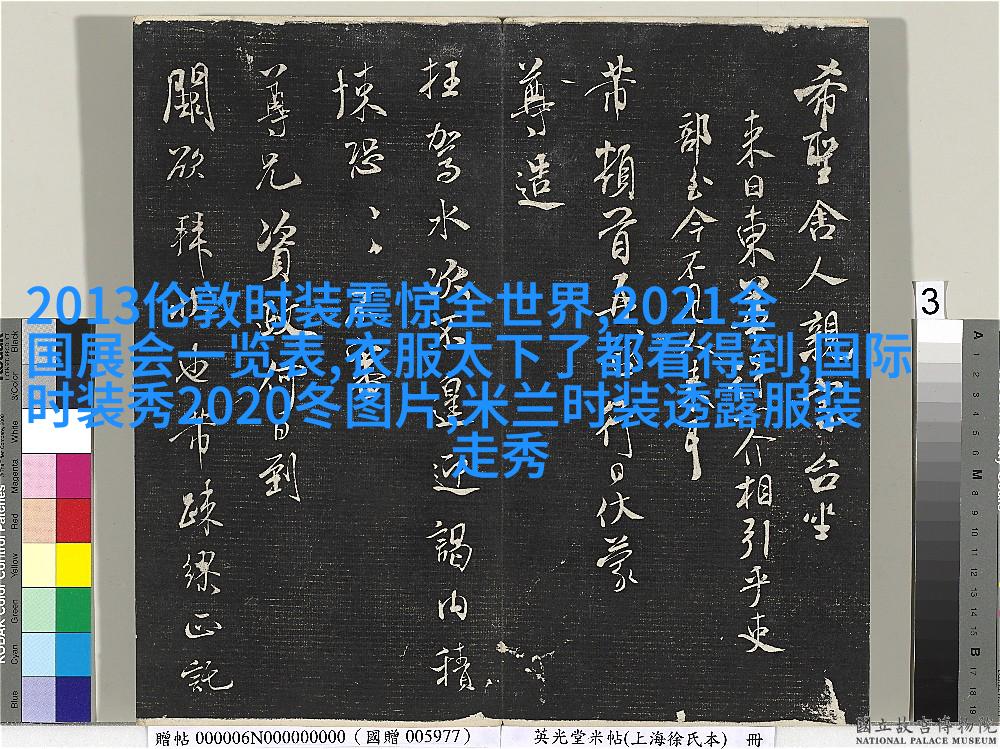 2013伦敦时装震惊全世界,2021全
国展会一览表,衣服太下了都看得到,国际
时装秀2020冬图片,米兰时装透露服装
走秀
希聖舍人親台坐
来日東介相引乎吏
部今不
芾頓首再行日伏蒙
尊造
枉駕水次不遑迎謁内積
悚恐
尊兄資政何日到
闕欲拜也芾疎繆正託
3
贈帖 000006N000000000 (國贈 005977)
英光堂米帖(上海徐氏本) 冊
國立故宮博物院
NATIONAL PALACE MUSEUM
KODAK Color Control Patches
Blue
Cyan
Green
Yellow
Red
Magenta
White
3/Color
Black
A
M
B